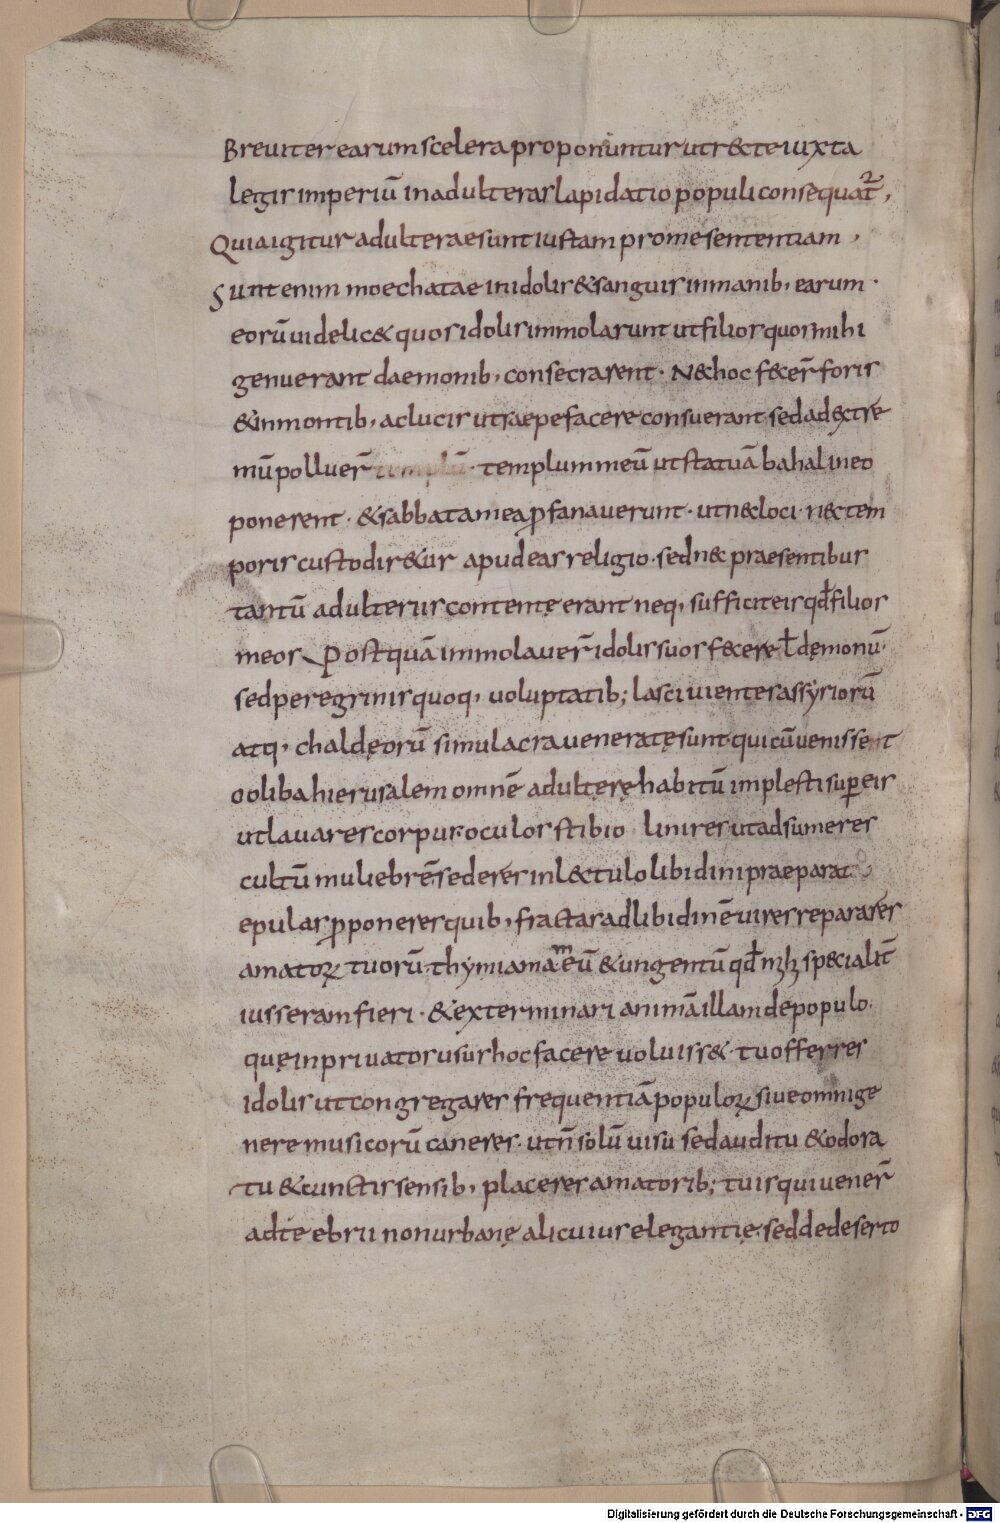 Breuiter earum scelera proponuntur ut recte iuxta
legis imperiū in adulteras lapidatio populi consequat᷑,
Quia igitur adulterae sunt iustam promesententiam,
Sunt enim moechatae in idolis & sanguis in manib, earum·
eorū uidelic& quos idolis immolarunt ut filios quos mihi
genuerant daemonib, consecrarent· N& hoc fecer̄ foris
& in montib, ac lucis ut saepe facere consuerant sed ad extre
mū polluer̄ · templum meū ut statuā bahal in eo
ponerent· & sabbata mea ꝓfanauerunt· ut n& loci· n& tem
poris custodir&ur apud eas religio· sed n& praesentibus
tantū adulteriis contentę erant neq, sufficit eis qđ filios
meos Postquā immolauer̄ idolis suos fecere ł dęmonū·
sed peregrinis quoq, uoluptatib; lasciuienter assyriorū
atq, chaldęorū simulacra ueneratę sunt qui cū uenissent
ooliba hierusalem omnē adulterę habitū implesti sup eis
ut lauares corpus· oculos stibio linires ut adsumeres
cultū muliebrē sederes in l&tulo libidini praeparat
epulas ꝓponeres quib, fractas ad libidinē uires repararēs
amatoꝝ tuorū· thymiama m̄ eū & ungentū qđ m ꝫ specialit̄
iusseram fieri· & exterminari animā illam de populo·
quę in priuatos usus hoc facere uoluiss&· tu offerres
idolis ut congregares frequentiā populoꝝ siue omni ge
nere musicorū caneres· ut n̄ solū uisu sed auditu & odora
tu & cunctis sensib, placeres amatorib; tuis qui uener̄
ad te ebrii non urbanę alicuius elegantię· sed de deserto
Digitalisierung gefördert durch die Deutsche Forschungsgemeinschaft - DFG